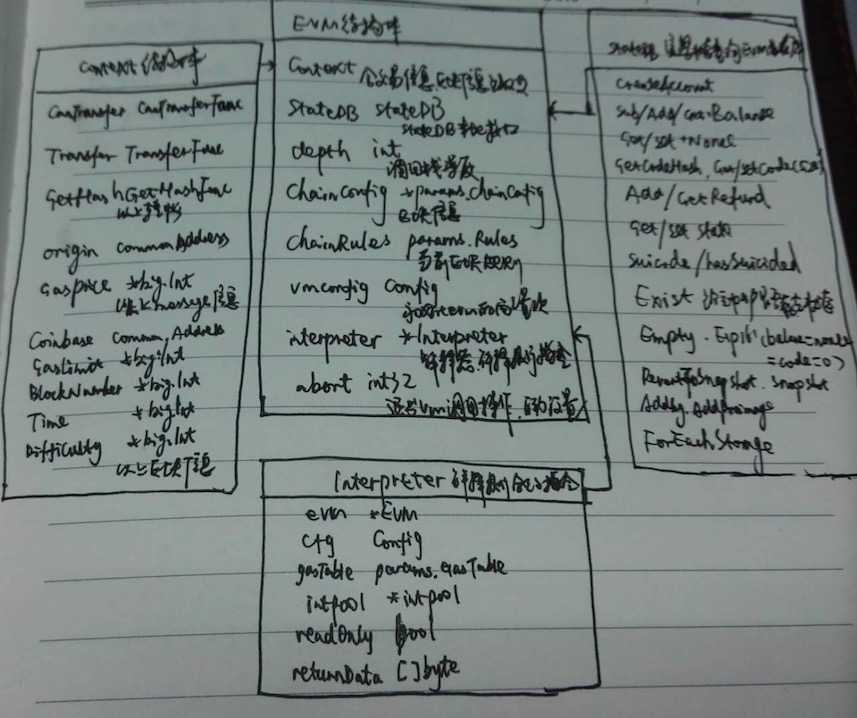 Context结构体
CanTransfer CanTransferFunc
Transfer TransferFunc
GetHash GetHashFunc
以上
origin common.Address
Gasprice *big.Int
以上message信息
Coinbase common.Address
GasLimit *big.Int
BlockNumber *big.Int
Time *big.Int
Difficulty *big.Int
以上区块信息
EVM结构体
Context
交易信息,区块信息
StateDB stateDB
StateDB
depth int
调用栈
ChainConfig *params.ChainConfig
区块信息
ChainRules params.Rules
当前区块规则
vmconfig Config
interpreter *Interpreter
解释器,解释执行指令
abort int32
vm调用操作
CreateAccount
Sub/Add/Get-Balance
Get/set-Nonce
GetCodeHash, Get/setCode
Add/GetRefund
Get/set state
suicide/hasSuicided
Exist
Empty. (balance=nonce
=code=0)
RevertToSnapshot. snapshot
Addlog. Addpreimage
ForEachStorage
Interpreter 解释执行指令
evm *EVM
Cfg Config
gasTable params.GasTable
intpool *intpool
readOnly bool
returnData []byte